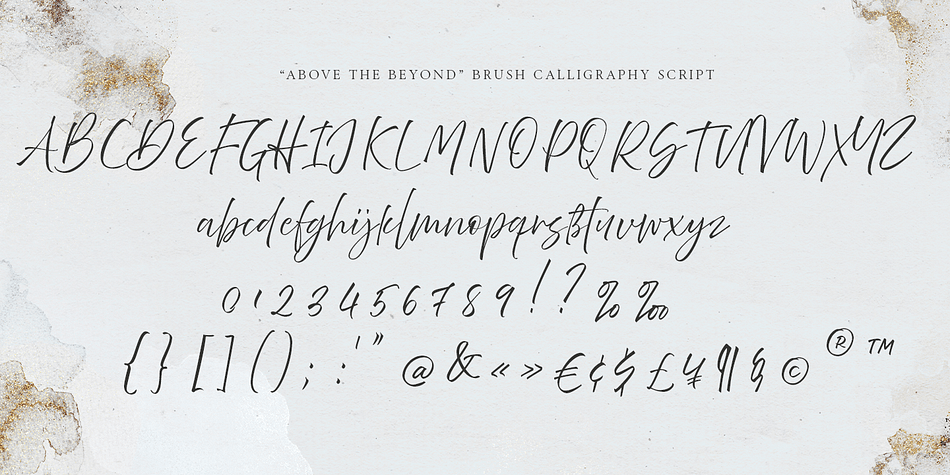 “ABOVE THE BEYOND” BRUSH CALLIGRAPHY SCRIPT
ABCDEFGHIJKLMNOPQRSTUVWXYZ
abcdefghijklmnopqrsßtuvwxyz
0123456789!?%‰
{}[]();:'"@&«»€¢$£¥¶§©®™